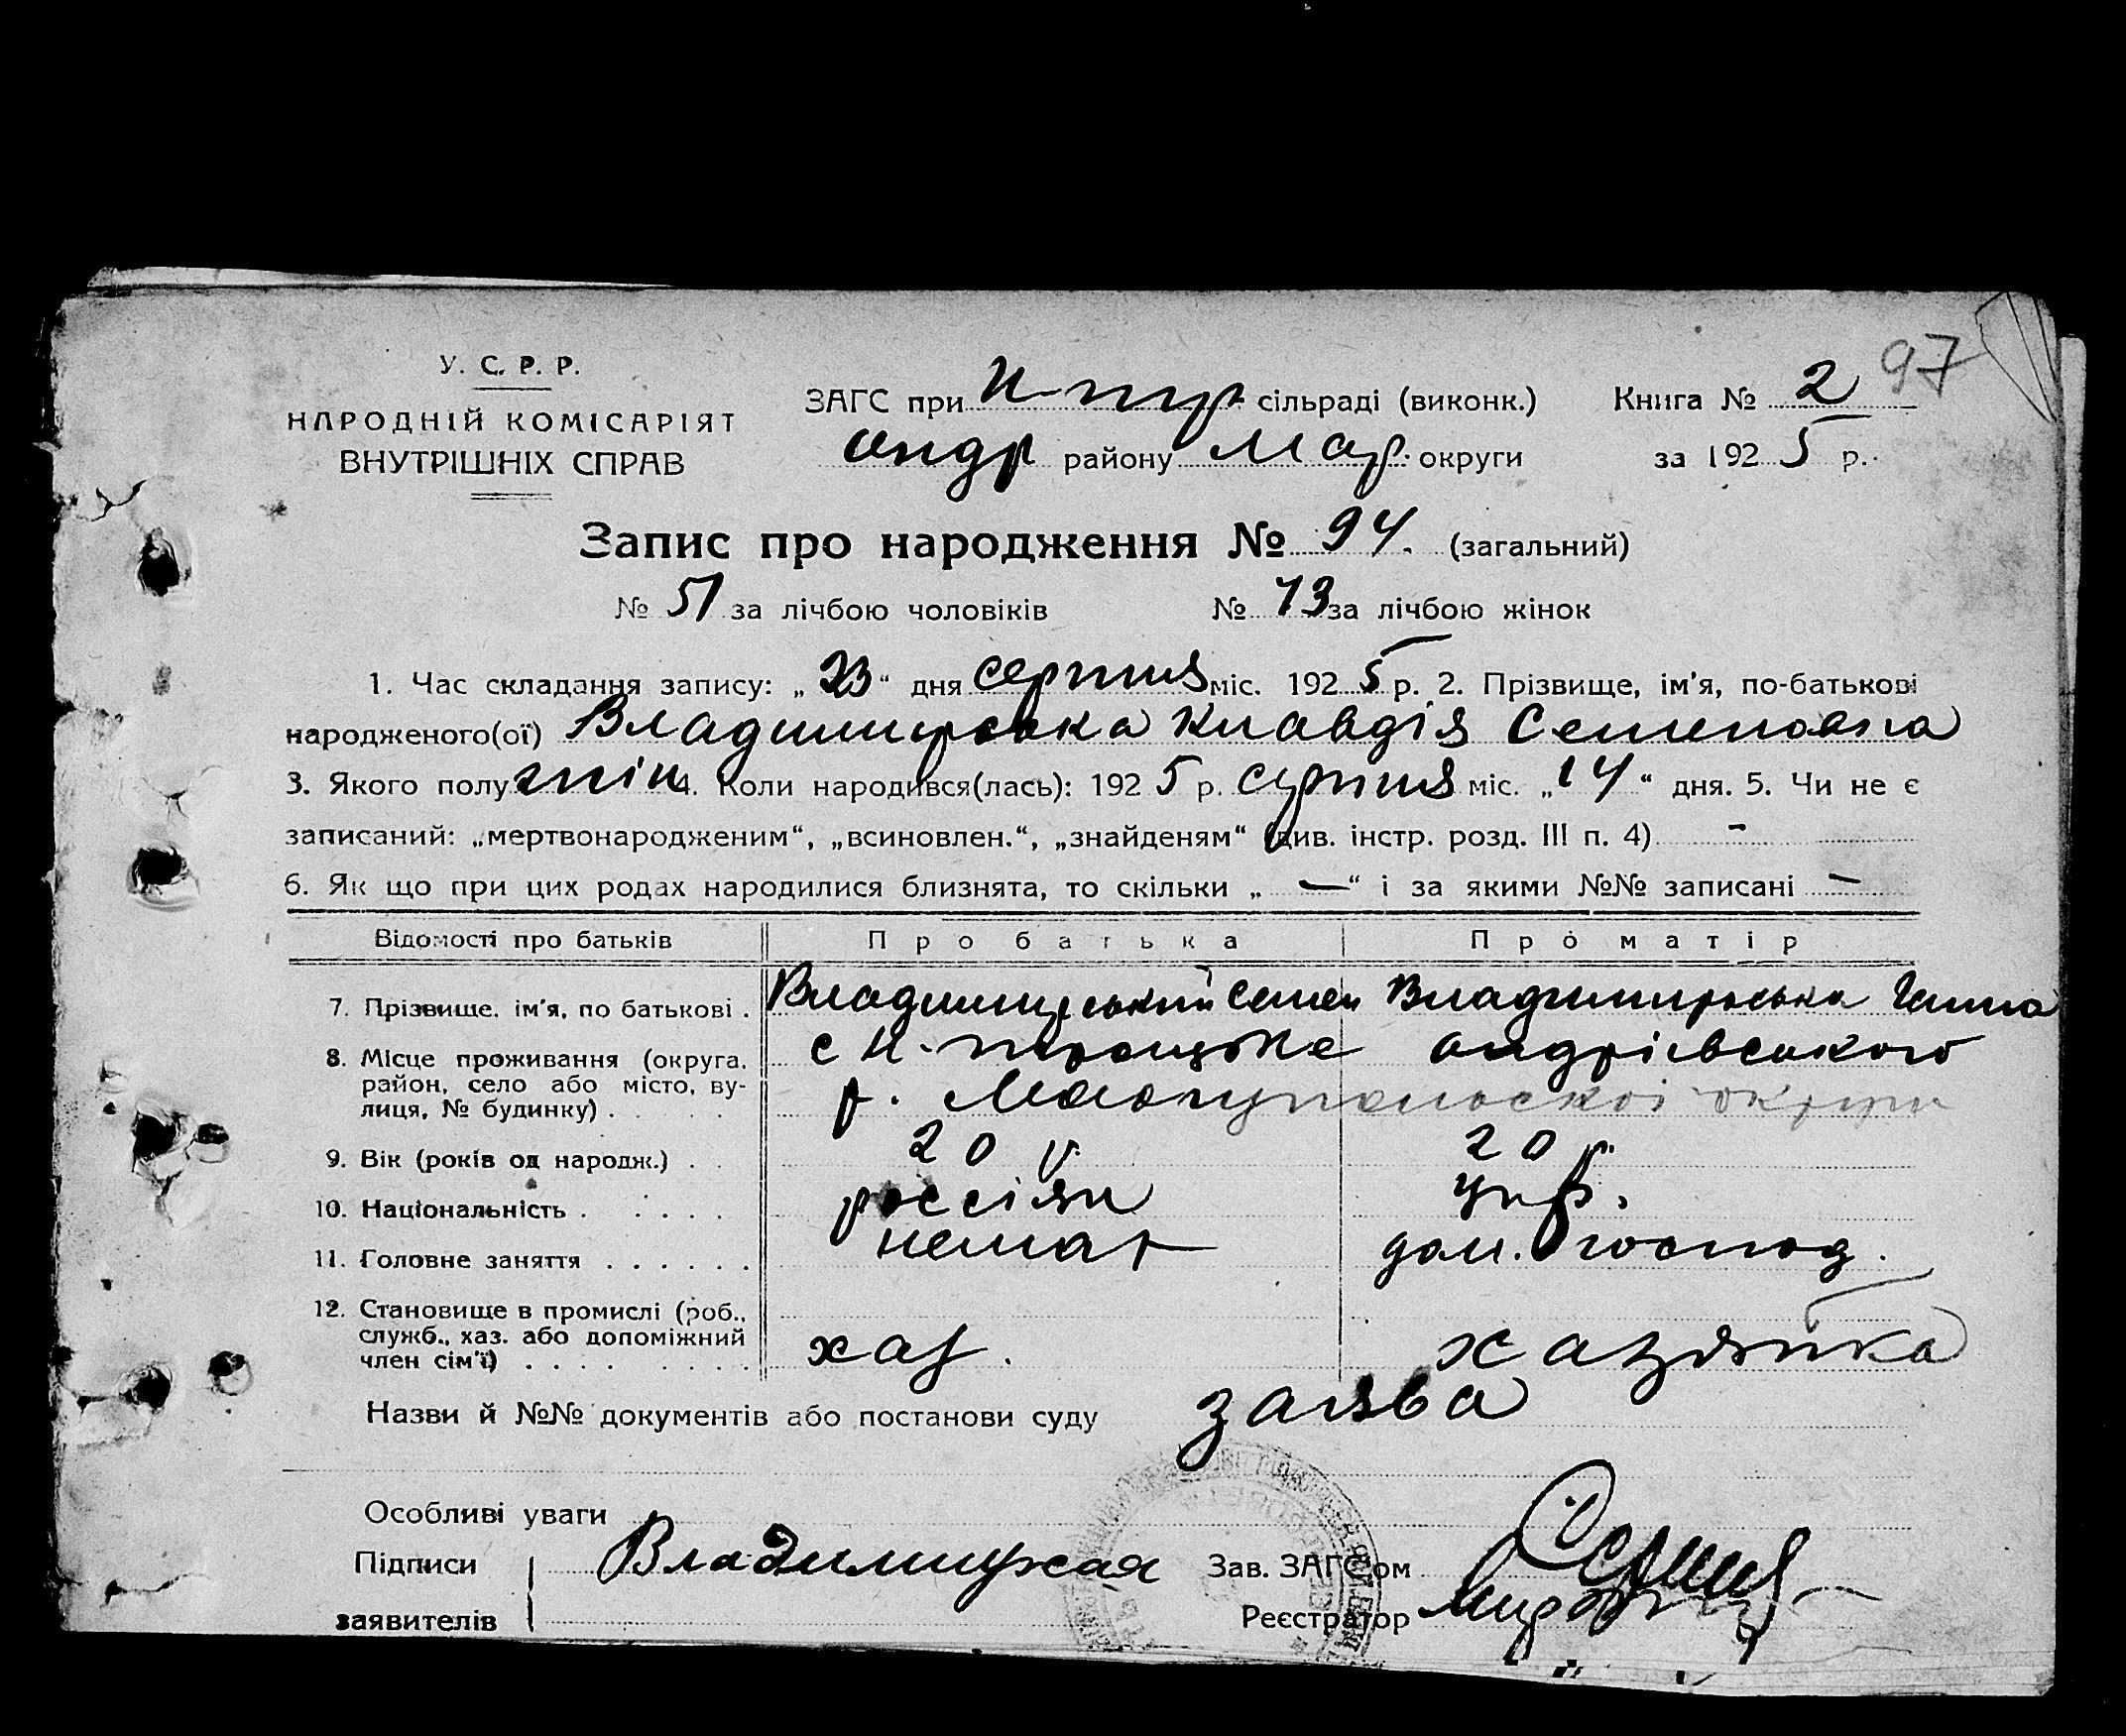 97
У. С. Р. Р.
НАРОДНІЙ КОМІСАРІЯТ
ВНУТРІШНІХ СПРАВ
ЗАГС при сільраді (виконк.) Книга № 2
андр району Мар. округи за 1925 р.
Запис про народження № 94. (загальний)
№ 51 за лічбою чоловіків № 43 за лічбою жінок
1. Час складання запису: „23“ дня серпня міс. 1925 р. 2. Прізвище, ім'я, по-батькові
народженого(ої) Владимирська Клавдія Семеновна
3. Якого полу жін 4. Коли народився(лась): 1925 р. серпня міс. „14“ дня. 5. Чи не є
записаний: „мертвонародженим“, „всиновлен.“, „знайденям“ (див. інстр. розд. III п. 4) -
6. Як що при цих родах народилися близнята, то скільки „ — “ і за якими №№ записані —
Відомості про батьків Про батька Про матір
7. Прізвище, ім'я, по батькові . Владимирський Семен Владимирська Ганна
8. Місце проживання (округа, с Н- андрієвського
район, село або місто, ву- р. Мариупольскоі округи
лиця, № будинку) . . . .
9. Вік (років од народж.) . . 20 р. 20 р.
10. Національність . . . . . россіян укр.
11. Головне заняття . . . . . . немає дом. господ.
12. Становище в промислі (роб.,
служб., хаз. або допоміжний хаз. хазяйка
член сім'ї) . . . . . . . .
Назви й №№ документів або постанови суду заява
Особливі уваги
Підписи Владимирская Зав. ЗАГС'ом
заявителів Реєстратор